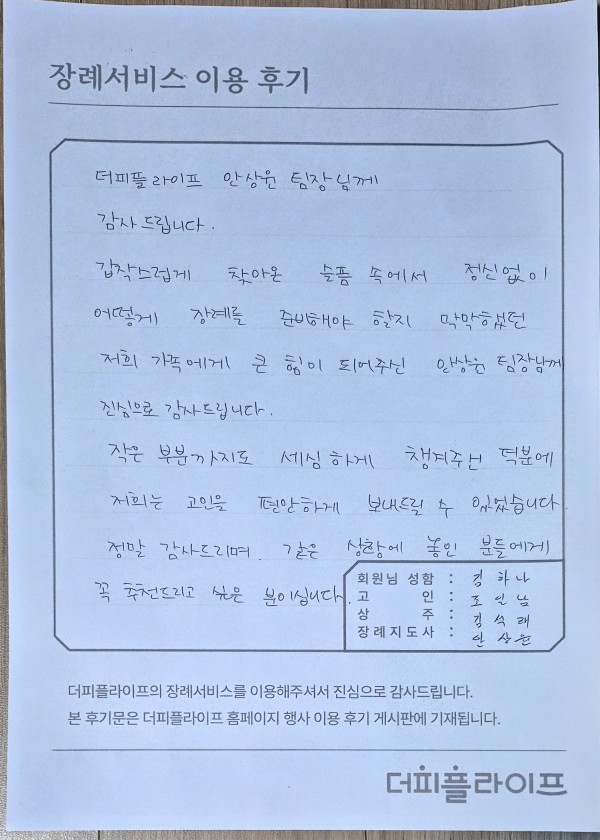 장례서비스 이용 후기
더피플라이프 안상원 팀장님께
감사드립니다.
갑작스럽게 찾아온 슬픔 속에서 정신없이
어떻게 장례를 준비해야 할지 막막했던
저희 가족에게 큰 힘이 되어주신 안상원 팀장님께
진심으로 감사드립니다.
작은 부분까지도 세심하게 챙겨주신 덕분에
저희는 고인을 편안하게 보내드릴 수 있었습니다.
정말 감사드리며. 같은 상황에 놓인 분들에게
꼭 추천드리고 싶은 분이십니다.
회원님 성함 : 김하나
고 인 : 조일남
상 주 : 김석래
장례지도사 : 안상원
더피플라이프의 장례서비스를 이용해주셔서 진심으로 감사드립니다.
본 후기문은 더피플라이프 홈페이지 행사 이용 후기 게시판에 기재됩니다.
더피플라이프